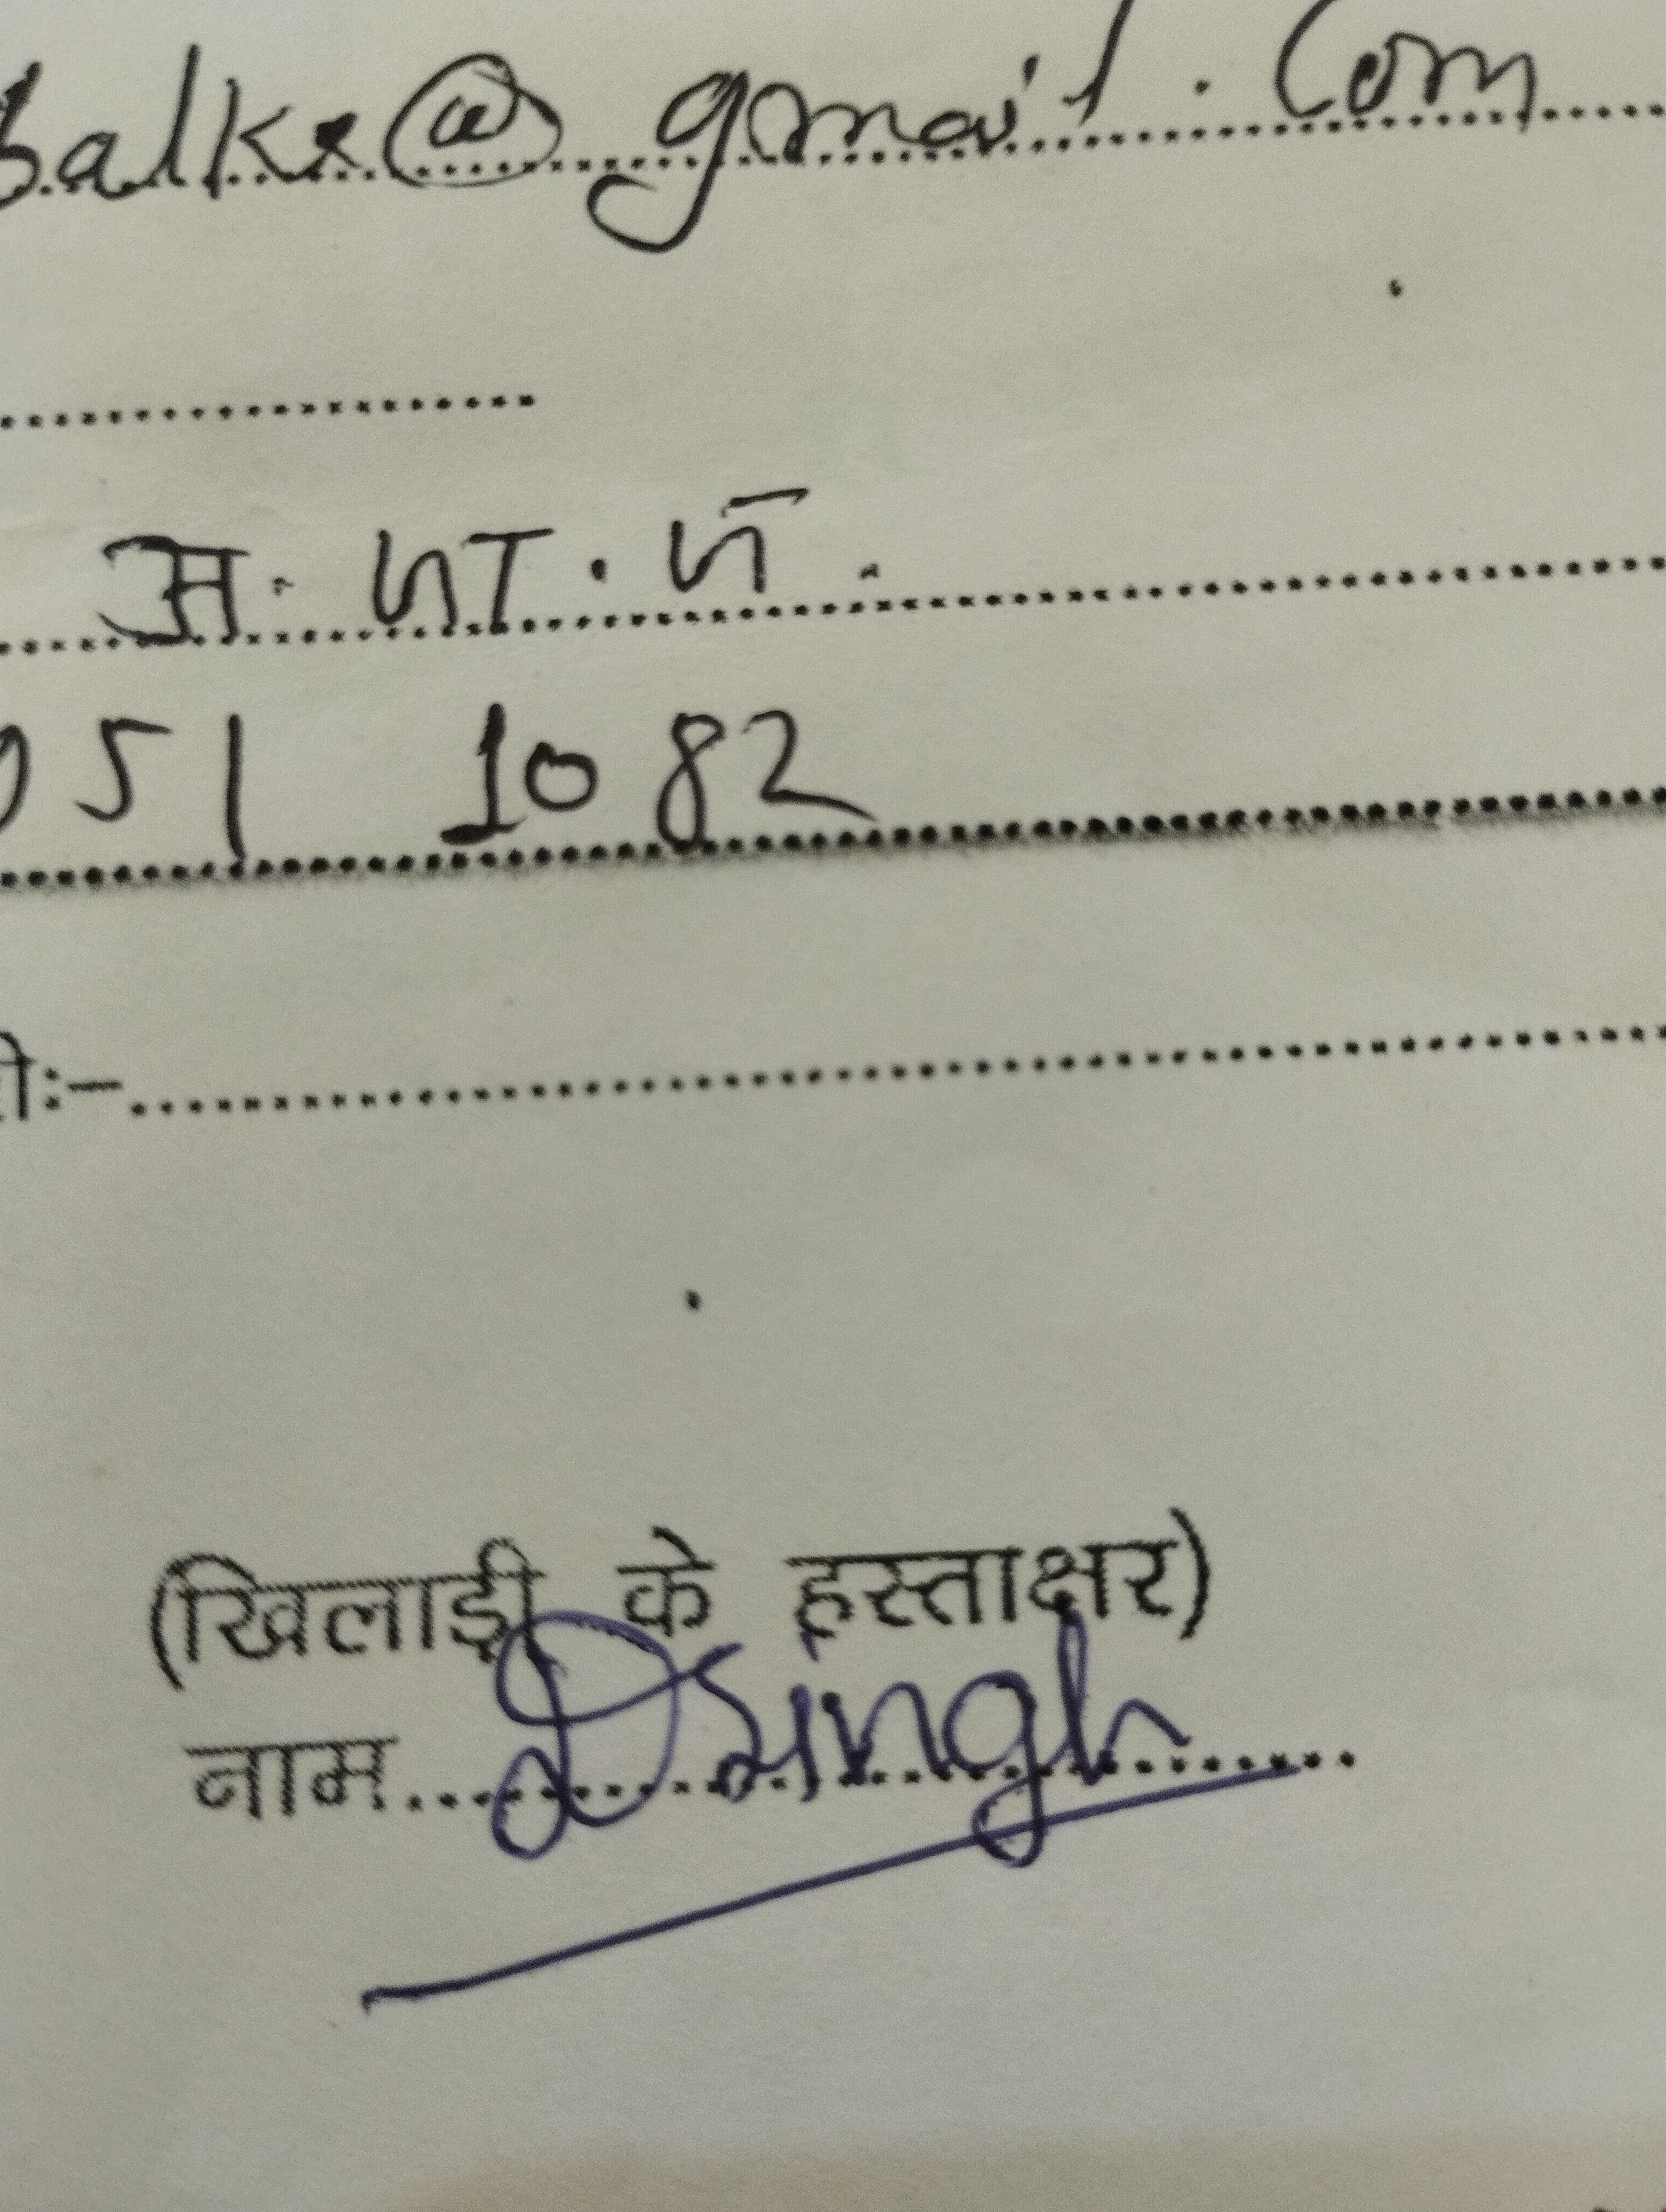 Balks@gmail.com
अ. जा. ज.
051 1082
ी:-
(खिलाड़ी के हस्ताक्षर)
नाम DSingh